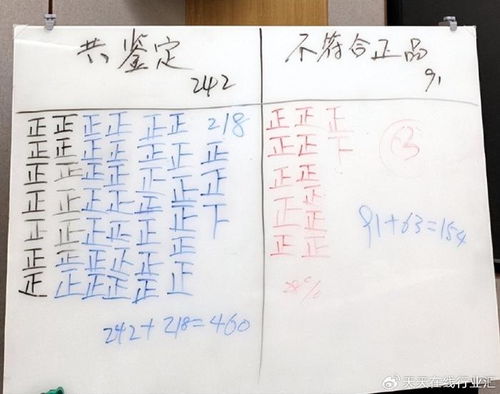 共鉴定
242
正正正正正正 218
正正正正正正正
正正正正正正正
正正正正正正下
正正正正正正
正正正正正正
正正正正正正
242+218=460
不符合正品
91
正正正
正正下
正正
正
正正
正正
63
91+63=154
天天在线行业汇